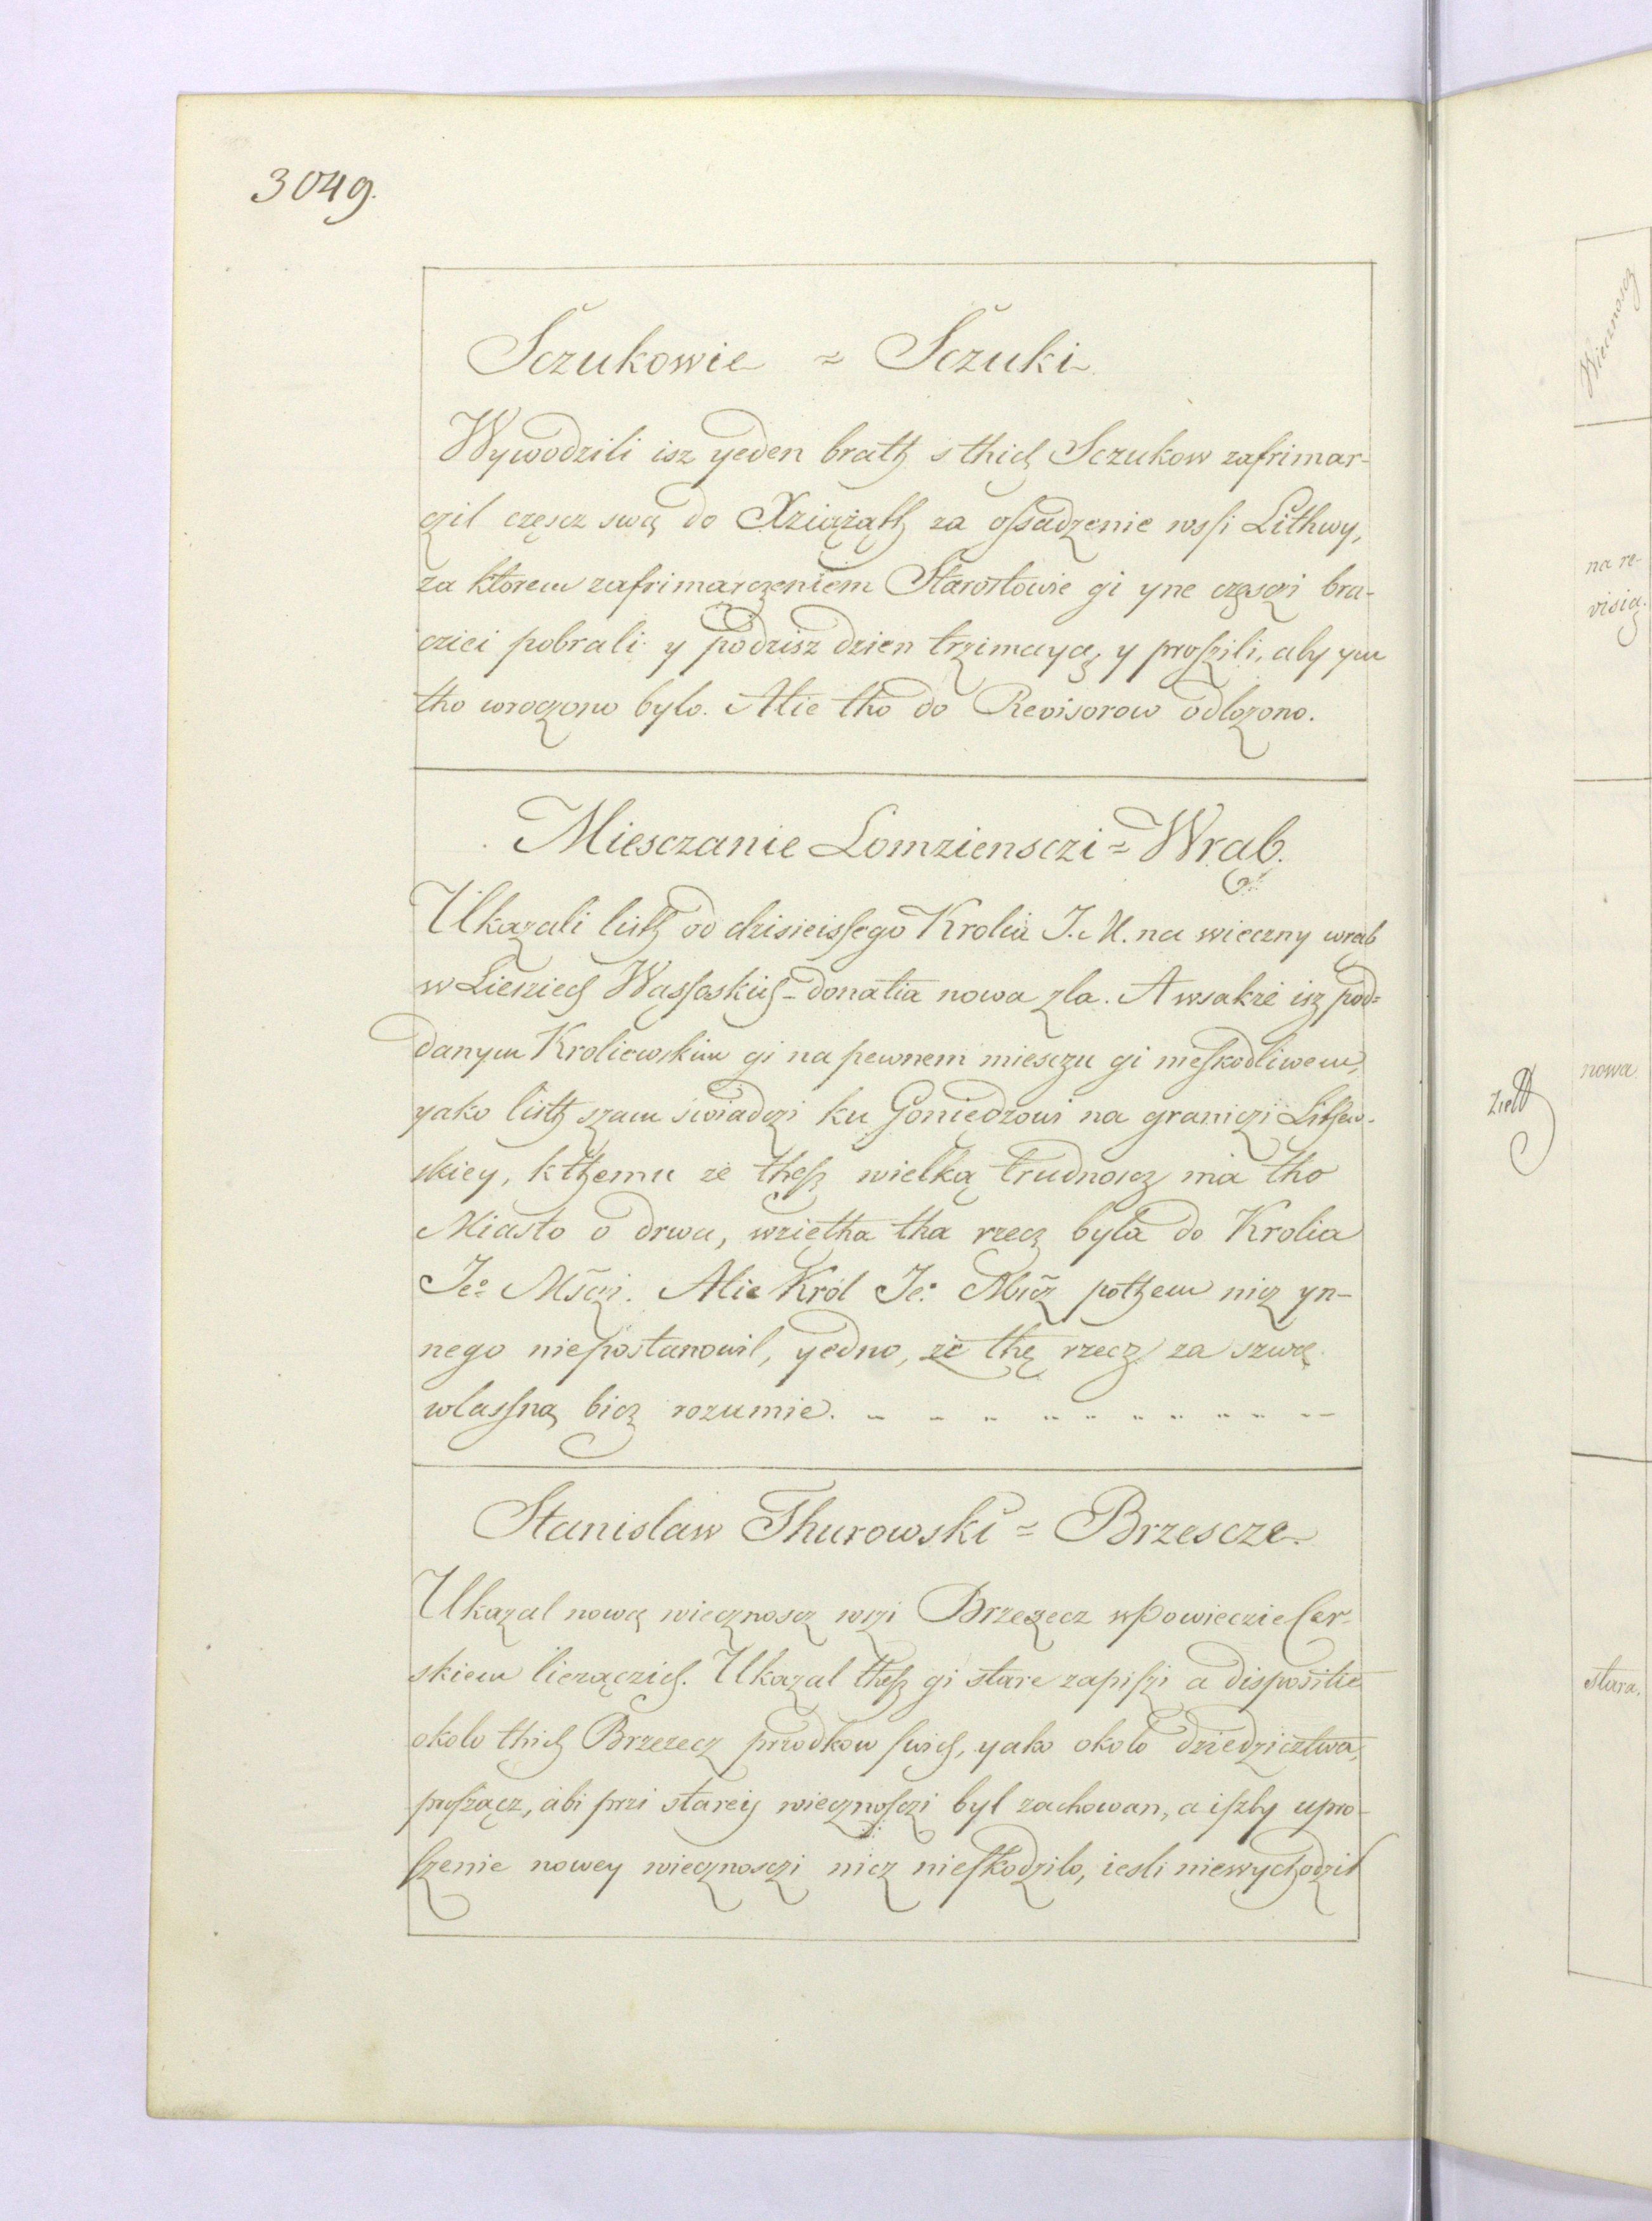 3049.
Sczukowie = Sczuki
Wywodzili isz yeden brath s thich Sczukow zafrimar-
czil częscz swą do Xziążąth za ossadzenie wssi Lithwy,
za ktorem zafrimarczeniem Starostowie gi yne częsczi bra-
cziei pobrali y podzisz dzien trzimayą, y proszili, aby ym
tho wroczono bylo. Alie tho do Revisorow odlozono.
Miesczanie Lomziensczi = Wrąb.
Ukazali listh od dzisieissego Krolia J. M. na wieczny wrąb
w Liesziech Wassoskich - donatia nowa zla. A wsakże isz pod=
danym Kroliewskim gi na pewnem miesczu gi nieskodliwem,
yako listh szam swiadczi ku Goniędzowi na graniczi Lithew-
skiey, k themu że thesz wielką trudnoscz ma tho
Miasto o drwa, wziętha tha rzecz była do Krolia
Je° Mści. Alie Król Je° Mścz pothem nicz yn-
nego niepostanowil, yedno, że thę rzecz za szwą
wlassną bicz rozumie.
Stanislaw Thurowski = Brzescze.
Ukazal nową wiecznoscz wszi Brzezecz w Powieczie Cer-
skiem liezączich. Ukazal thesz gi stare zapiszi a dispositie
okolo thich Brzezecz przodkow swich, yako okolo dziedzicztwa,
prosząc, abi przi starey wiecznosczi byl zachowan, a iszby upro-
szenie nowey wiecznosczi nicz nieskodzilo, iesli niewychodzil
Wiecznoscz
na re-
visią.
nowa
stara.